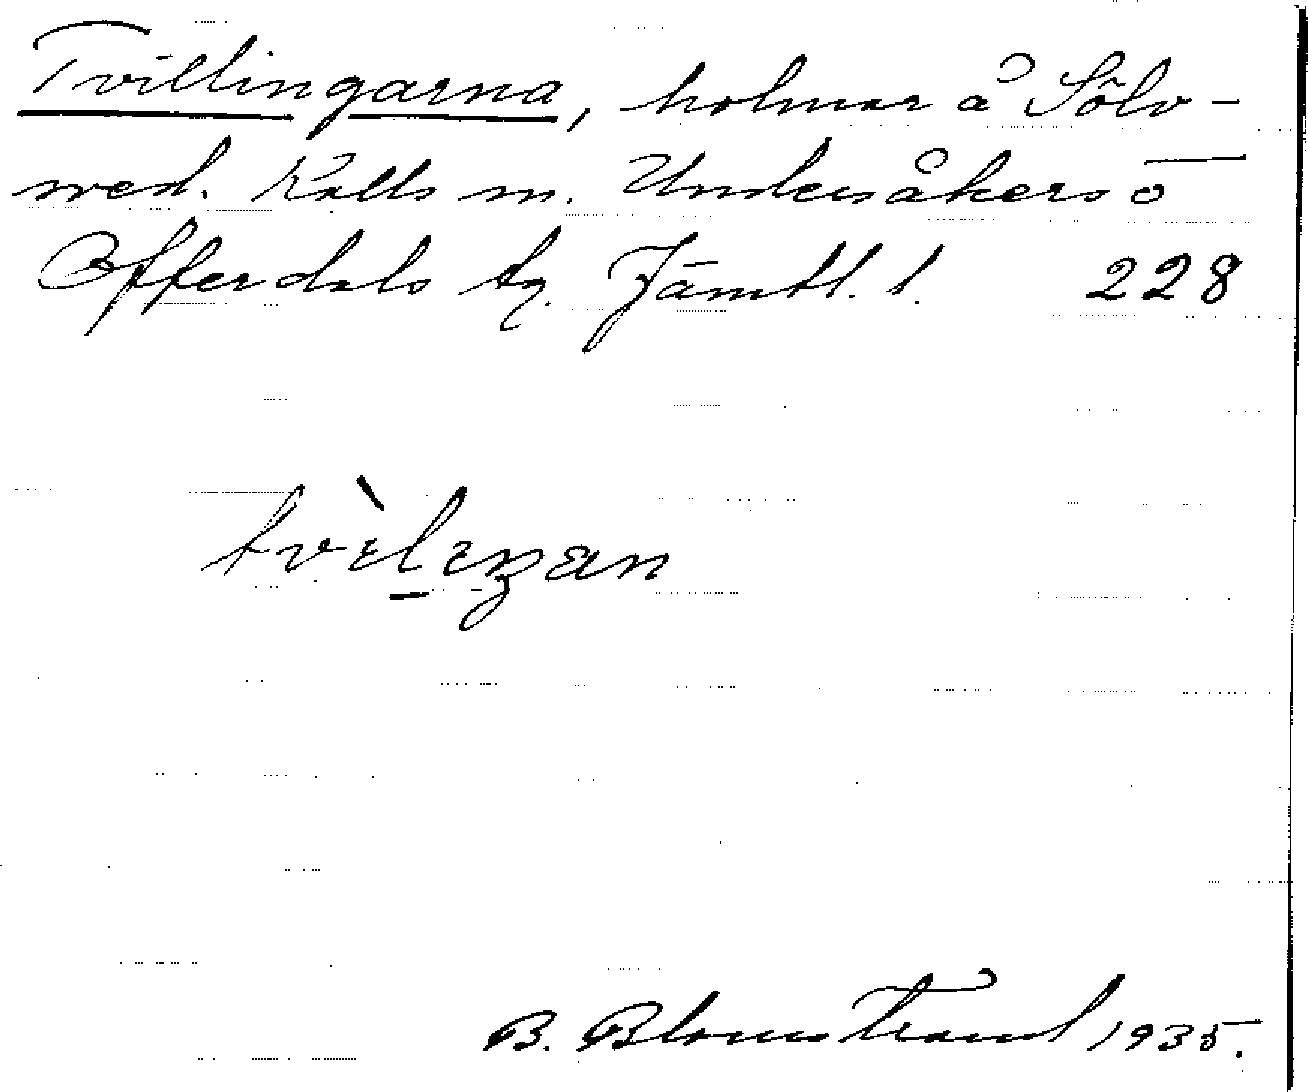 Tvillingarna, holmar å Sölv-
ved. Kalls sn. Undersåkers o
Offerdals tg. Jämtl. l. 228
B. Blomstrand 1935.